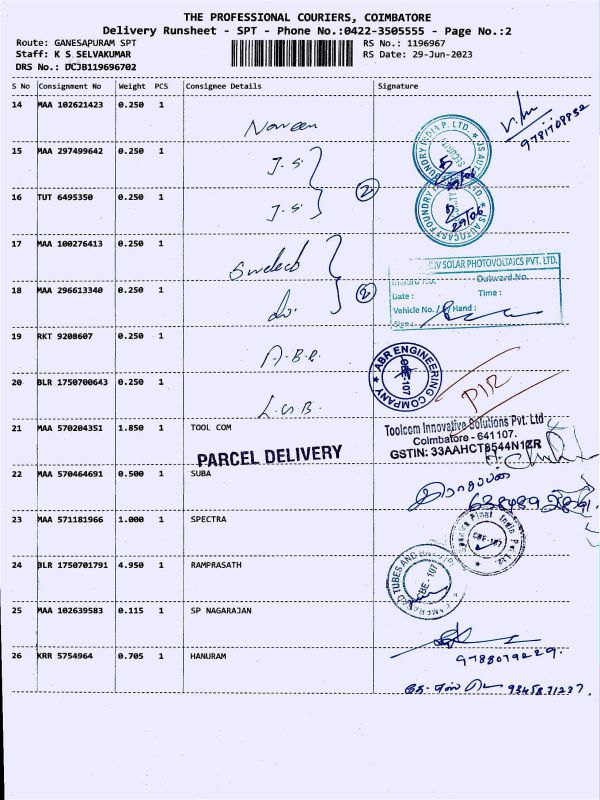 THE PROFESSIONAL COURIERS, COIMBATORE
Delivery Runsheet - SPT - Phone No.:0422-3505555 - Page No.:2
Route: GANESAPURAM SPT RS No.: 1196967
Staff: K S SELVAKUMAR RS Date: 29-Jun-2023
DRS No.: DCJB119696702
S No Consignment No Weight PCS Consignee Details Signature
14 MAA 102621423 0.250 1
Naveen
9781708832
15 MAA 297499642 0.250 1
J.S
16 TUT 6495350 0.250 1
J.S
2
29/06
29/06
17 MAA 100276413 0.250 1
SOLAR PHOTOVOLTAICS PVT. LTD.
Outward No.
18 MAA 296613340 0.250 1
2
Date : Time :
Vehicle No. / Hand :
Sign :
19 RKT 9208607 0.250 1
A.B.R
ABR ENGINEERING COMPANY
CBE-107
20 BLR 1750700643 0.250 1
L.G.B.
21 MAA 570204351 1.850 1 TOOL COM
Toolcom Innovative Solutions Pvt. Ltd
Coimbatore - 641107.
GSTIN: 33AAHCT8544N1ZR
PARCEL DELIVERY
22 MAA 570464691 0.500 1 SUBA
23 MAA 571181966 1.000 1 SPECTRA
CBE-107
24 BLR 1750701791 4.950 1 RAMPRASATH
CBE - 107
25 MAA 102639583 0.115 1 SP NAGARAJAN
26 KRR 5754964 0.705 1 HANURAM
9788079229.
9345871237.